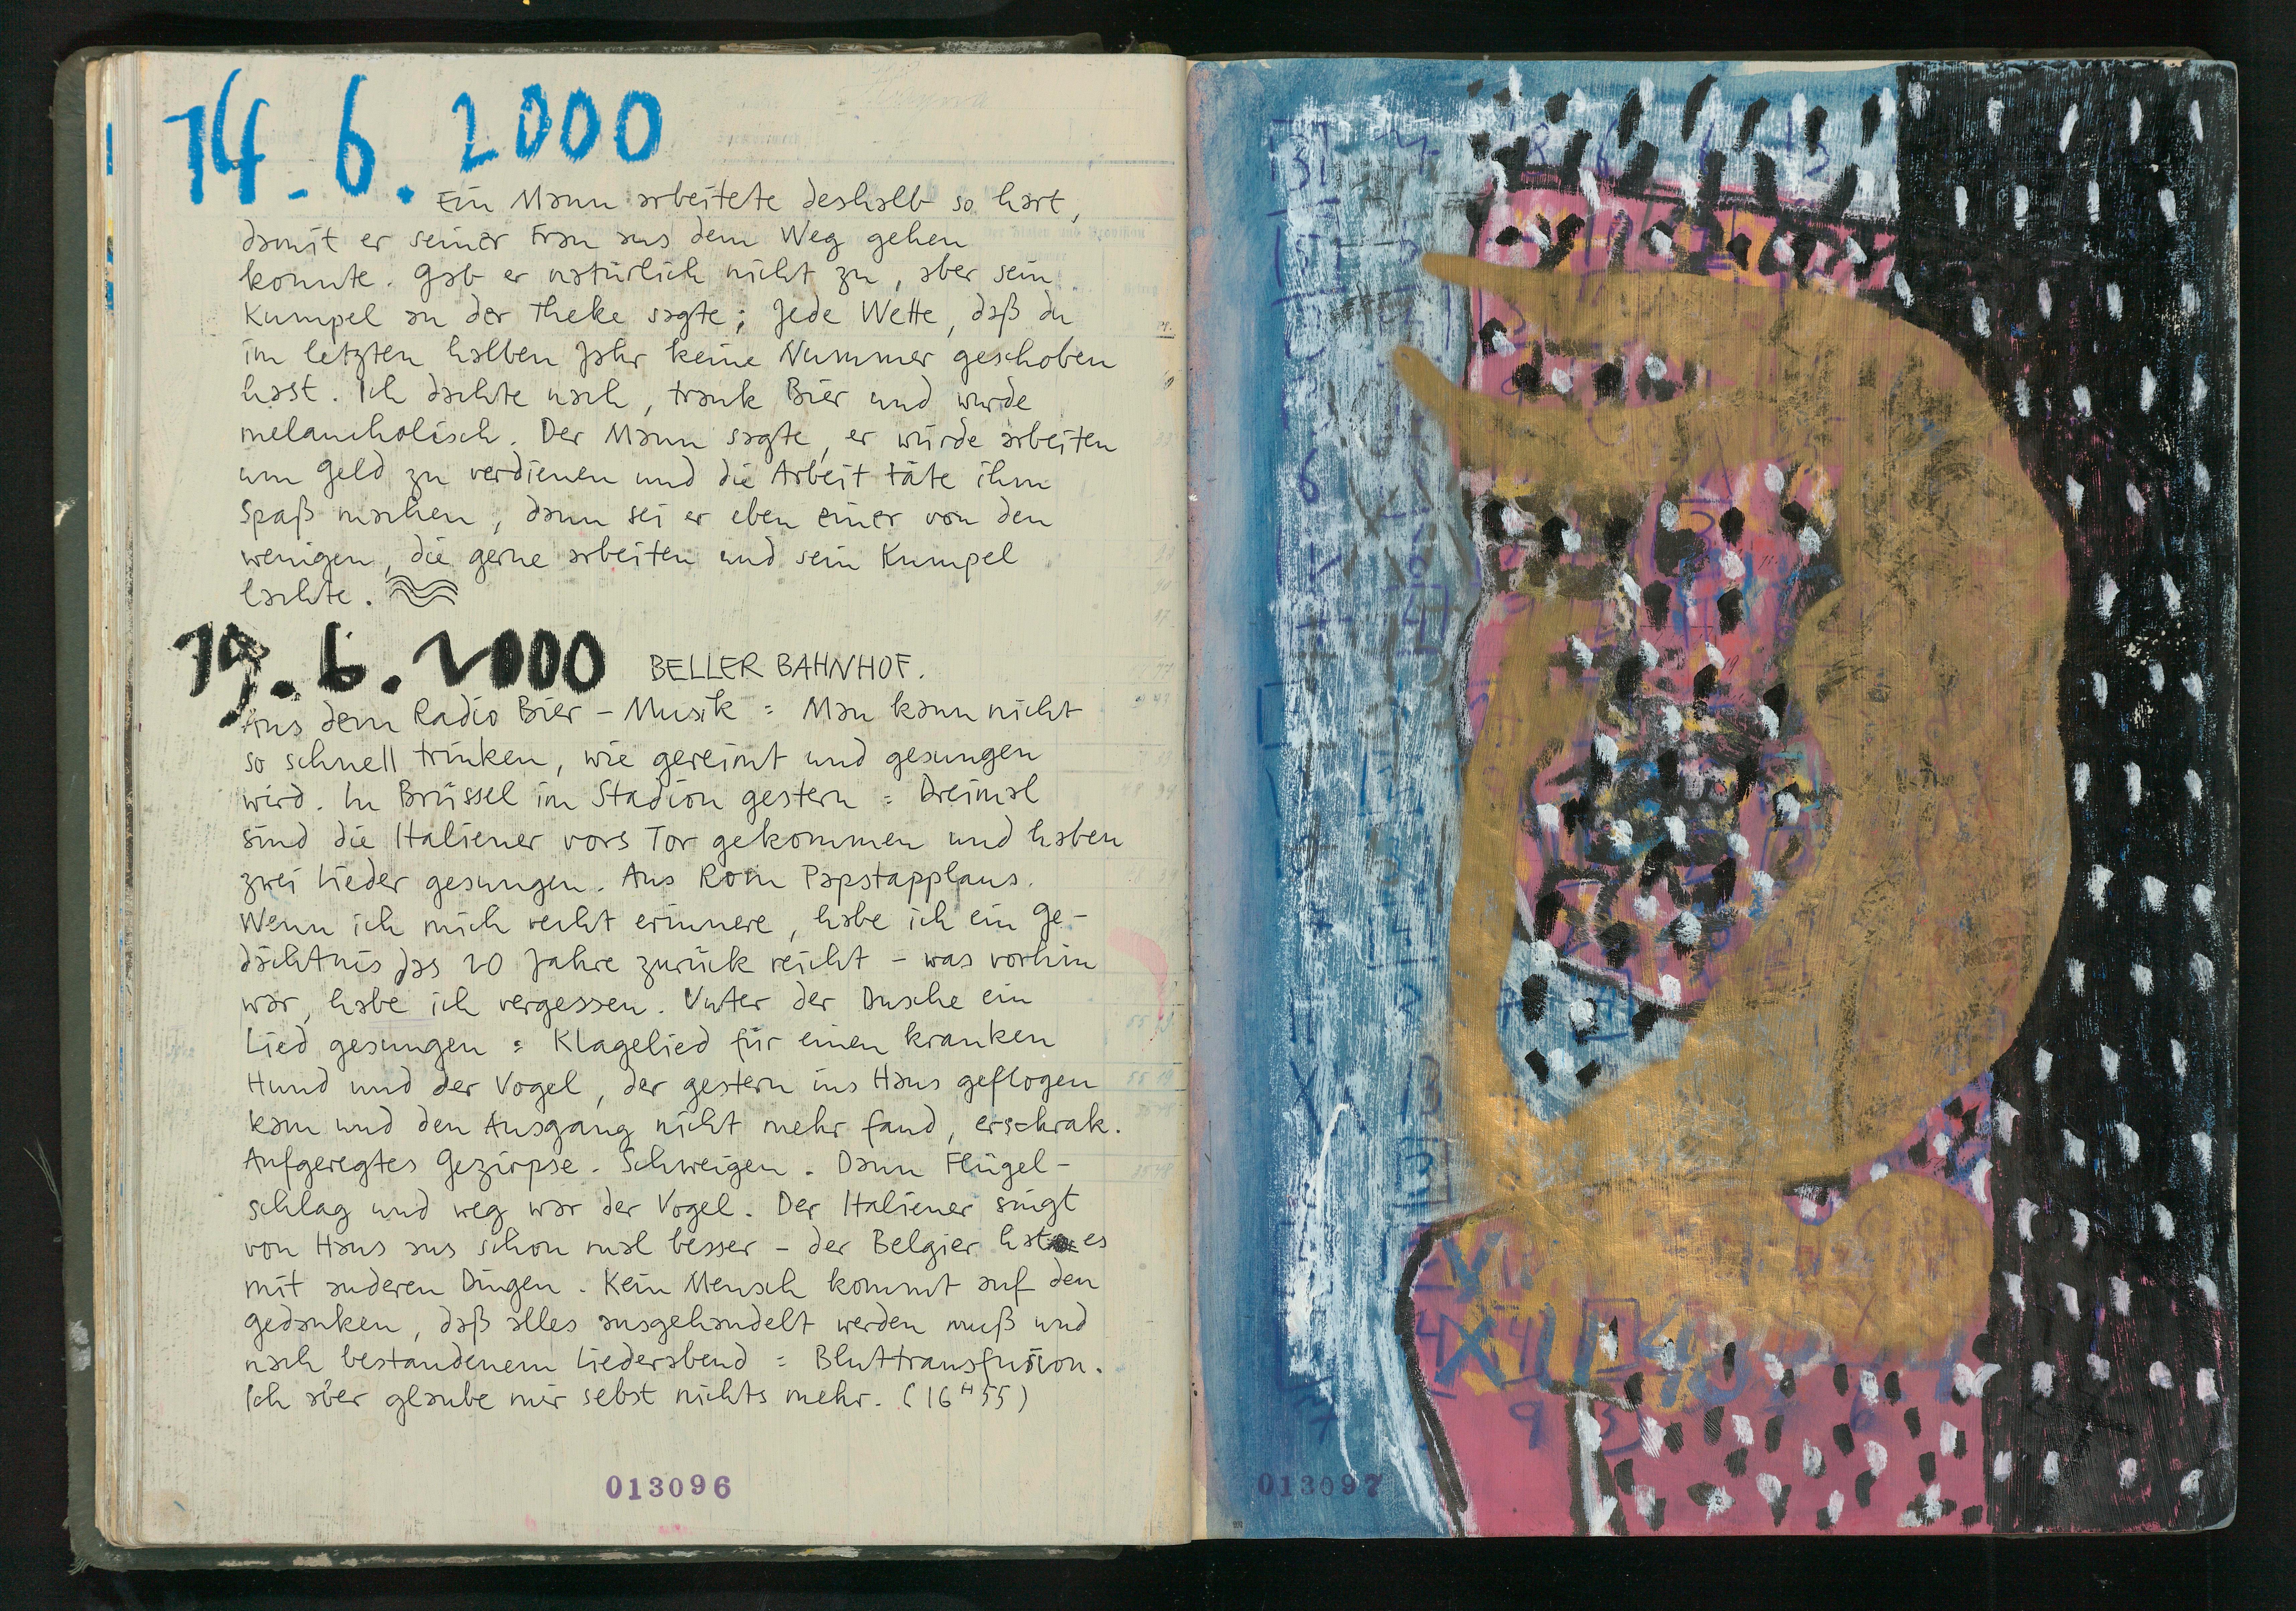 14.6.2000
Ein Mann arbeitete deshalb so hart,
damit er seiner Frau aus dem Weg gehen
konnte. Gab er natürlich nicht zu, aber sein
Kumpel an der Theke sagte; Jede Wette, daß du
im letzten halben Jahr keine Nummer geschoben
hast. Ich dachte nach, trank Bier und wurde
melancholisch. Der Mann sagte, er würde arbeiten
um Geld zu verdienen und die Arbeit täte ihm
Spaß machen, dann sei er eben einer von den
wenigen, die gerne arbeiten und sein Kumpel
lachte.
19.6.2000 BELLER BAHNHOF.
Aus dem Radio Bier-Musik = Man kann nicht
so schnell trinken, wie gereimt und gesungen
wird. In Brüssel im Stadion gestern = Dreimal
sind die Italiener vors Tor gekommen und haben
zwei Lieder gesungen. Aus Rom Papstapplaus.
Wenn ich mich recht erinnere, habe ich ein Ge-
dächtnis das 20 Jahre zurück reicht – was vorhin
war, habe ich vergessen. Unter der Dusche ein
Lied gesungen = Klagelied für einen kranken
Hund und der Vogel, der gestern ins Haus geflogen
kam und den Ausgang nicht mehr fand, erschrak.
Aufgeregtes Gezirpse. Schweigen. Dann Flügel-
schlag und weg war der Vogel. Der Italiener singt
von Haus aus schon mal besser – der Belgier hat es
mit anderen Dingen. Kein Mensch kommt auf den
Gedanken, daß alles ausgehandelt werden muß und
nach bestandenem Liederabend = Bluttransfusion.
Ich aber glaube mir selbst nichts mehr. (16 H 55)
013096
013097